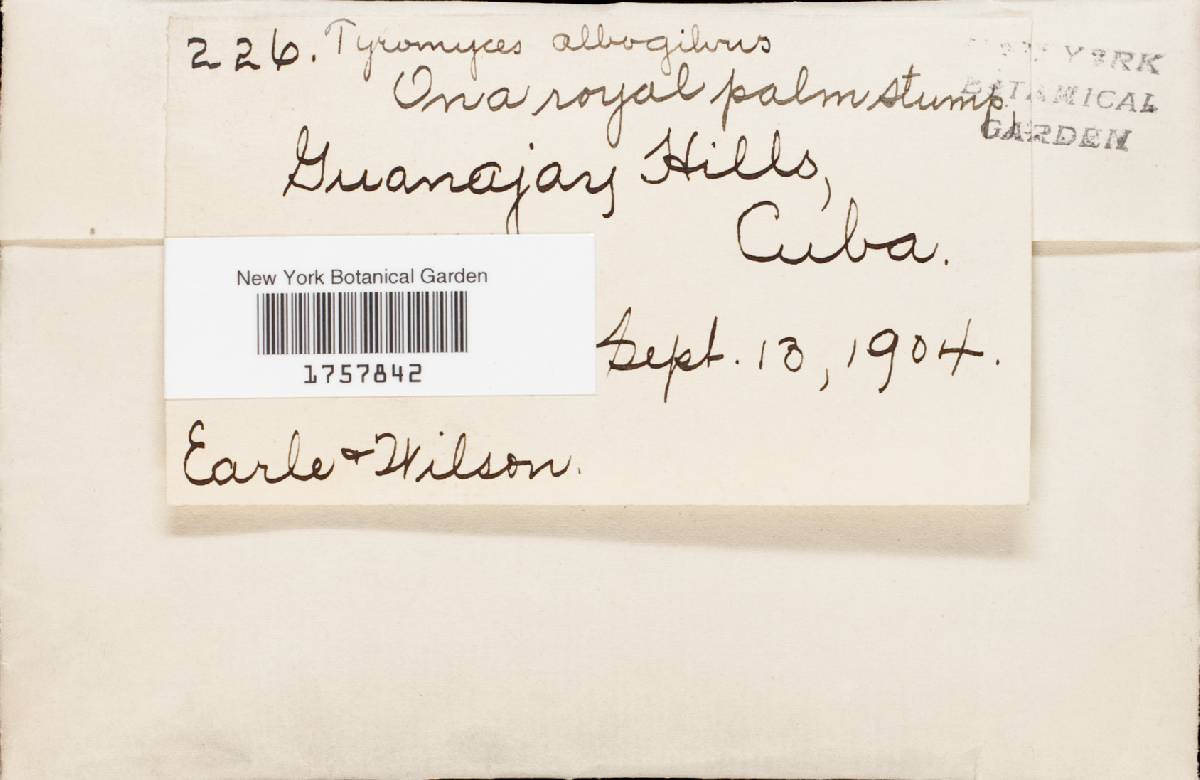 226. Tyromyces albogilvus
On a royal palm stump
Guanajay Hills,
Cuba.
Sept. 13, 1904.
Earle & Wilson.
NEW YORK
BOTANICAL
GARDEN
New York Botanical Garden
1757842